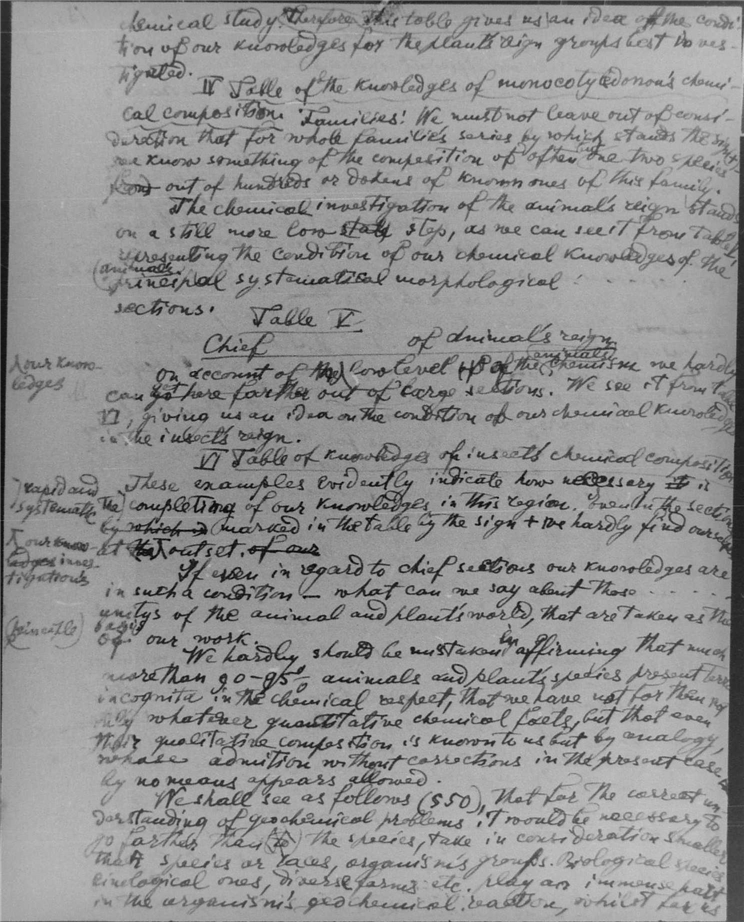 chemical study. Therefore this table gives us an idea of the condi-
tion of our knowledges for the plant's reign groups best inves-
tigated.
IV Table of the knowledges of monocotyledonous chemi-
cal composition. Families! We must not leave out of consi-
deration that for whole families series by which stands the sign +,
we know something of the composition of often but one two species
from out of hundreds or dozens of known ones of this family.
The chemical investigation of the animal's reign stands
on a still more low state step, as we can see it from table V
representing the condition of our chemical knowledges of the
(animals)
principal systematical morphological
sections.
Table V
Chief of animal's reign
our know-
ledges
on account of the low level of the (animals) chemism we hardly
can go here farther out of large sections. We see it from table
VI, giving us an idea on the condition of our chemical knowledges
in the insect's reign.
VI Table of knowledges on insect's chemical composition
These examples evidently indicate how necessary it is
rapid and
systematic
the completing of our knowledges in this region. Even in the sections
by which is marked in the table by the sign + we hardly find ourselves
our know-
ledges inves-
tigations
at the outset of our
If even in regard to chief sections our knowledges are
in such a condition – what can we say about those
unitys of the animal and plant's world, that are taken as the
(principle)
basis
of our work.
We hardly should be mistaken in affirming that much
more than 90-95% animals and plant's species present terra
incognita in the chemical respect, that we have not for them not
only whatever quantitative chemical facts, but that even
their qualitative composition is known to us but by analogy,
whose admition without corrections in the present case
by no means appears allowed.
We shall see as follows (§50), that for the correct un-
derstanding of geochemical problems it would be necessary to
go farther than (to) the species, take in consideration smaller
than species or races, organism's groups. Biological species
ones, diverse farms etc. play an immense part
in the organism's geochemical reaction, whilst far as